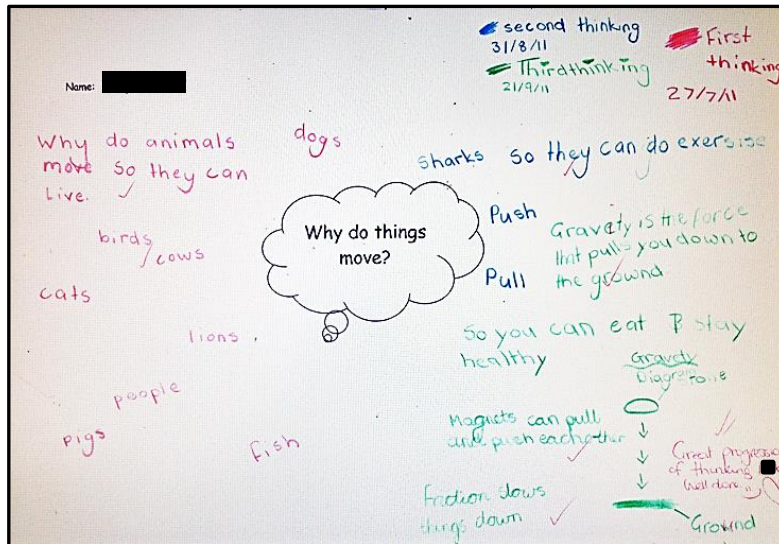 second thinking
31/8/11
Third thinking
21/9/11
First
thinking
27/7/11
Name:
Why do animals
move so they can
Live.
dogs
birds
cows
cats
lions
people
pigs
fish
Why do things
move?
Sharks so they can do exersise
Push
Pull
Gravety is the force
that pulls you down to
the ground
So you can eat & stay
healthy
Gravety
Diagram
Magnets can pull
and push each other
Friction slows
things down
Great progression
of thinking
Well done
Ground